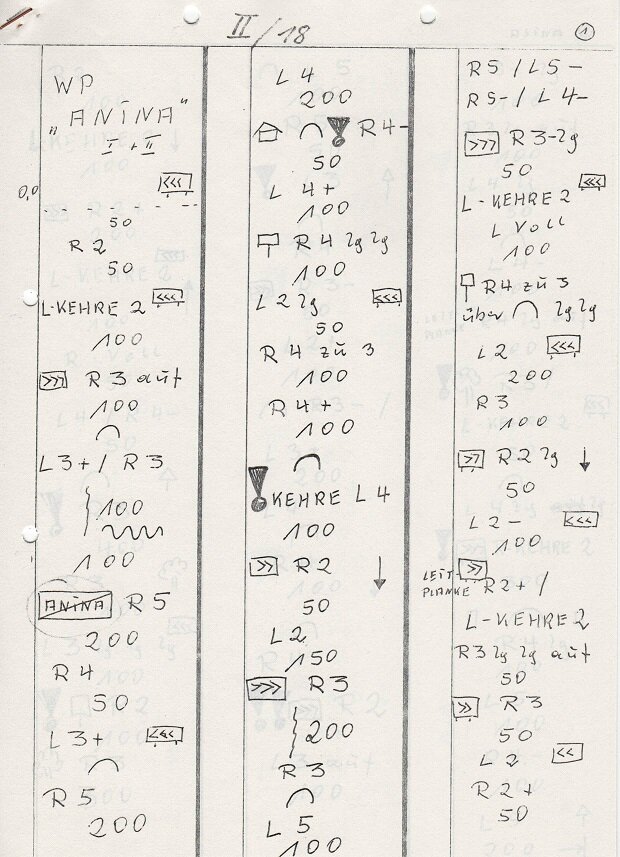 II / 18
1
WP
"ANINA"
I + II
0,0 <<<
50
R 2
50
L-KEHRE 2 <<<
100
>>> R 3 auf
100
L 3+ / R 3
100
100
ANINA R 5
200
R 4
50
L 3+ <<<
R 5
200
L 4
200
! R 4-
50
L 4+
100
R 4 2g 2g
100
L 2 2g <<<
50
R 4 zu 3
100
R 4+
100
! KEHRE L 4
100
>> R 2
50
L 2
150
>>> R 3
200
R 3
L 5
100
R 5 / L 5-
R 5- / L 4-
>>> R 3- 2g
50
L-KEHRE 2 <<<
L Voll
100
R 4 zu 3
über 2g 2g
L 2 <<<
200
R 3
100
>> R 2 2g
50
L 2- <<<
100
LEIT-
PLANKE >> R 2+ /
L-KEHRE 2
R 3 2g 2g auf
50
>> R 3
50
L 2 <<
R 2+
50